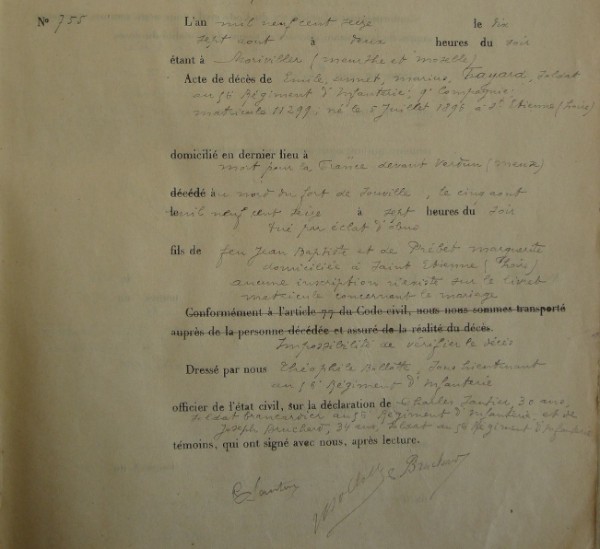 Nº 755
L'an mil neuf cent seize le dix
sept aout à douze heures du soir
étant à Moriviller (Meurthe et Moselle)
Acte de décès de Emile, Marius, Fayard, soldat
au 56 Régiment d'Infanterie; 9e Compagnie;
matricule 11299; né le 5 Juillet 1895 à St Etienne (Loire)
domicilié en dernier lieu à
mort pour la France devant Verdun (Meuse)
décédé au nord du fort de Souville, le cinq aout
mil neuf cent seize à sept heures du soir
tué par éclat d'obus
fils de feu Jean Baptiste et de Marguerite
domiciliée à Saint Etienne (Loire)
aucune inscription n'existe sur le livret
matricule concernant le mariage
Conformément à l'article 77 du Code civil, nous nous sommes transporté
auprès de la personne décédée et assuré de la réalité du décès.
Impossibilité de vérifier le décès
Dressé par nous Théophile Billotte, Sous lieutenant
au 56 Régiment d'Infanterie
officier de l'état civil, sur la déclaration de Charles 30 ans,
soldat brancardier au 56 Régiment d'Infanterie et de
Joseph Bruchard, 34 ans, soldat au 56 Régiment d'Infanterie
témoins, qui ont signé avec nous, après lecture.
Bruchard